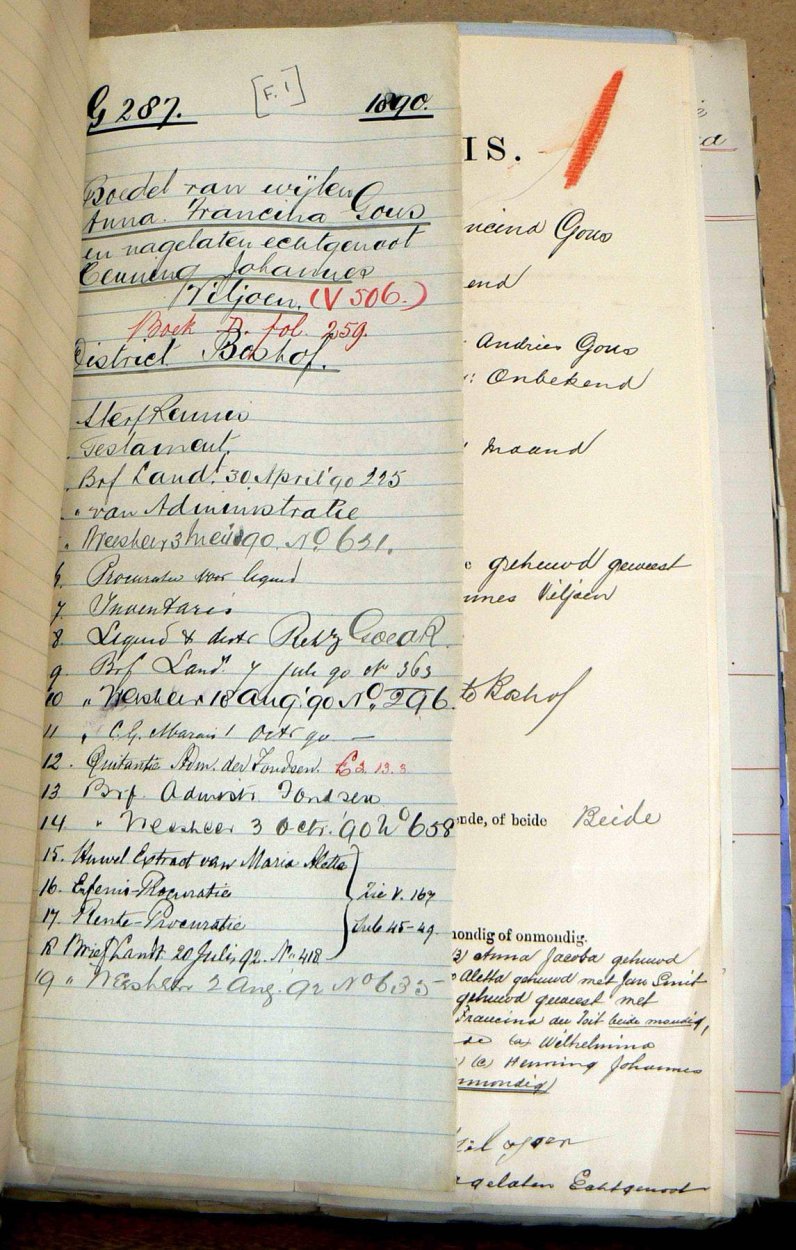 G 287. [F.1] 1890.
Boedel van wijlen
Anna Francina Gous
en nagelaten echtgenoot
Henning Johannes
Viljoen. (V 506.)
Boek D. fol. 259.
District Boshof.
Sterfkennis
Testament.
Brf Landt. 30 April '90 225
" van Administratie
" Weesheer 3 Mei 90. No. 631.
6. Procuratie voor liquid
7. Inventaris
8 Liquid & distr Rek
9. Brf Landt 7 Juli 90 No 363
10 " Weesheer 18 Aug. '90 No. 296.
11 " C.G. Marais 1 Octr 90 —
12. Quitantie Adm. der Fondsen. £2. 13. 3
13 Brf. Admistr. Fondsen
14 " Weesheer 3 Octr. '90 No 658
15. Huwel Extract van Maria Aletta
16. Erfenis-Procuratie
17. Rente-Procuratie
18 Brief Landt. 20 Julij 92. No. 418
Zie V. 167
Sub 45-49.
19 " Weesheer 2 Aug. '92 No 635
IS.
ncina Gous
end
Andries Gous
: Onbekend
maand
e gehuwd geweest
nnes Viljoen
te Boshof
ende, of beide Beide
mondig of onmondig.
Anna Jacoba gehuwd
Aletta gehuwd met Jan Smit
gehuwd geweest met
Francina du Toit beide mondig,
de (a) Wilhelmina
(c) Henning Johannes
nmondig)
gelaten Echtgenoot